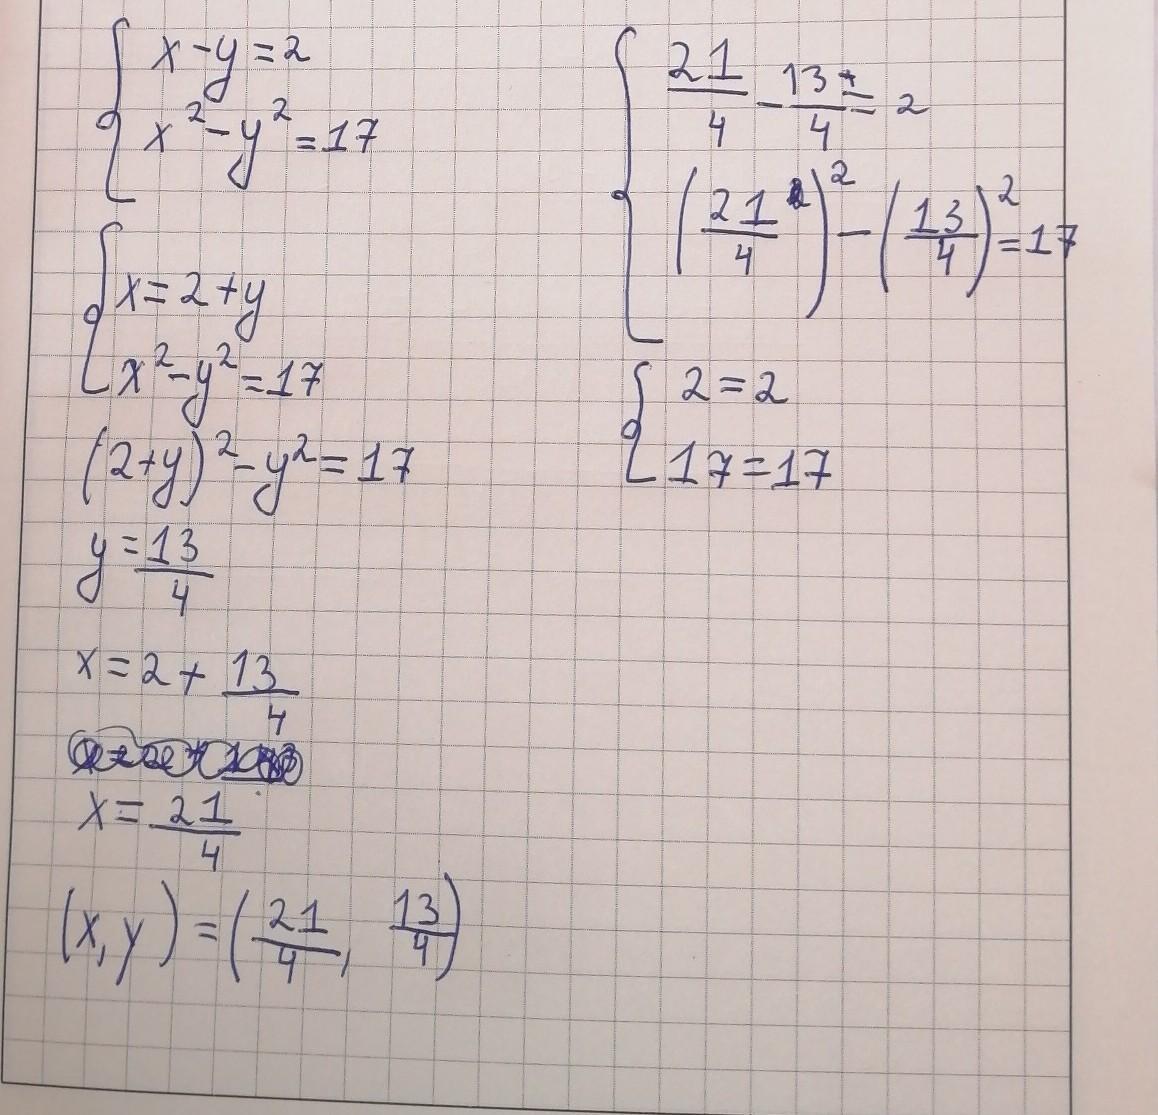 x-y=2
x²-y²=17
x=2+y
x²-y²=17
(2+y)²-y²=17
y=13/4
x=2+13/4
x=21/4
(x,y)=(21/4, 13/4)
21/4-13/4=2
(21/4)²-(13/4)²=17
2=2
17=17